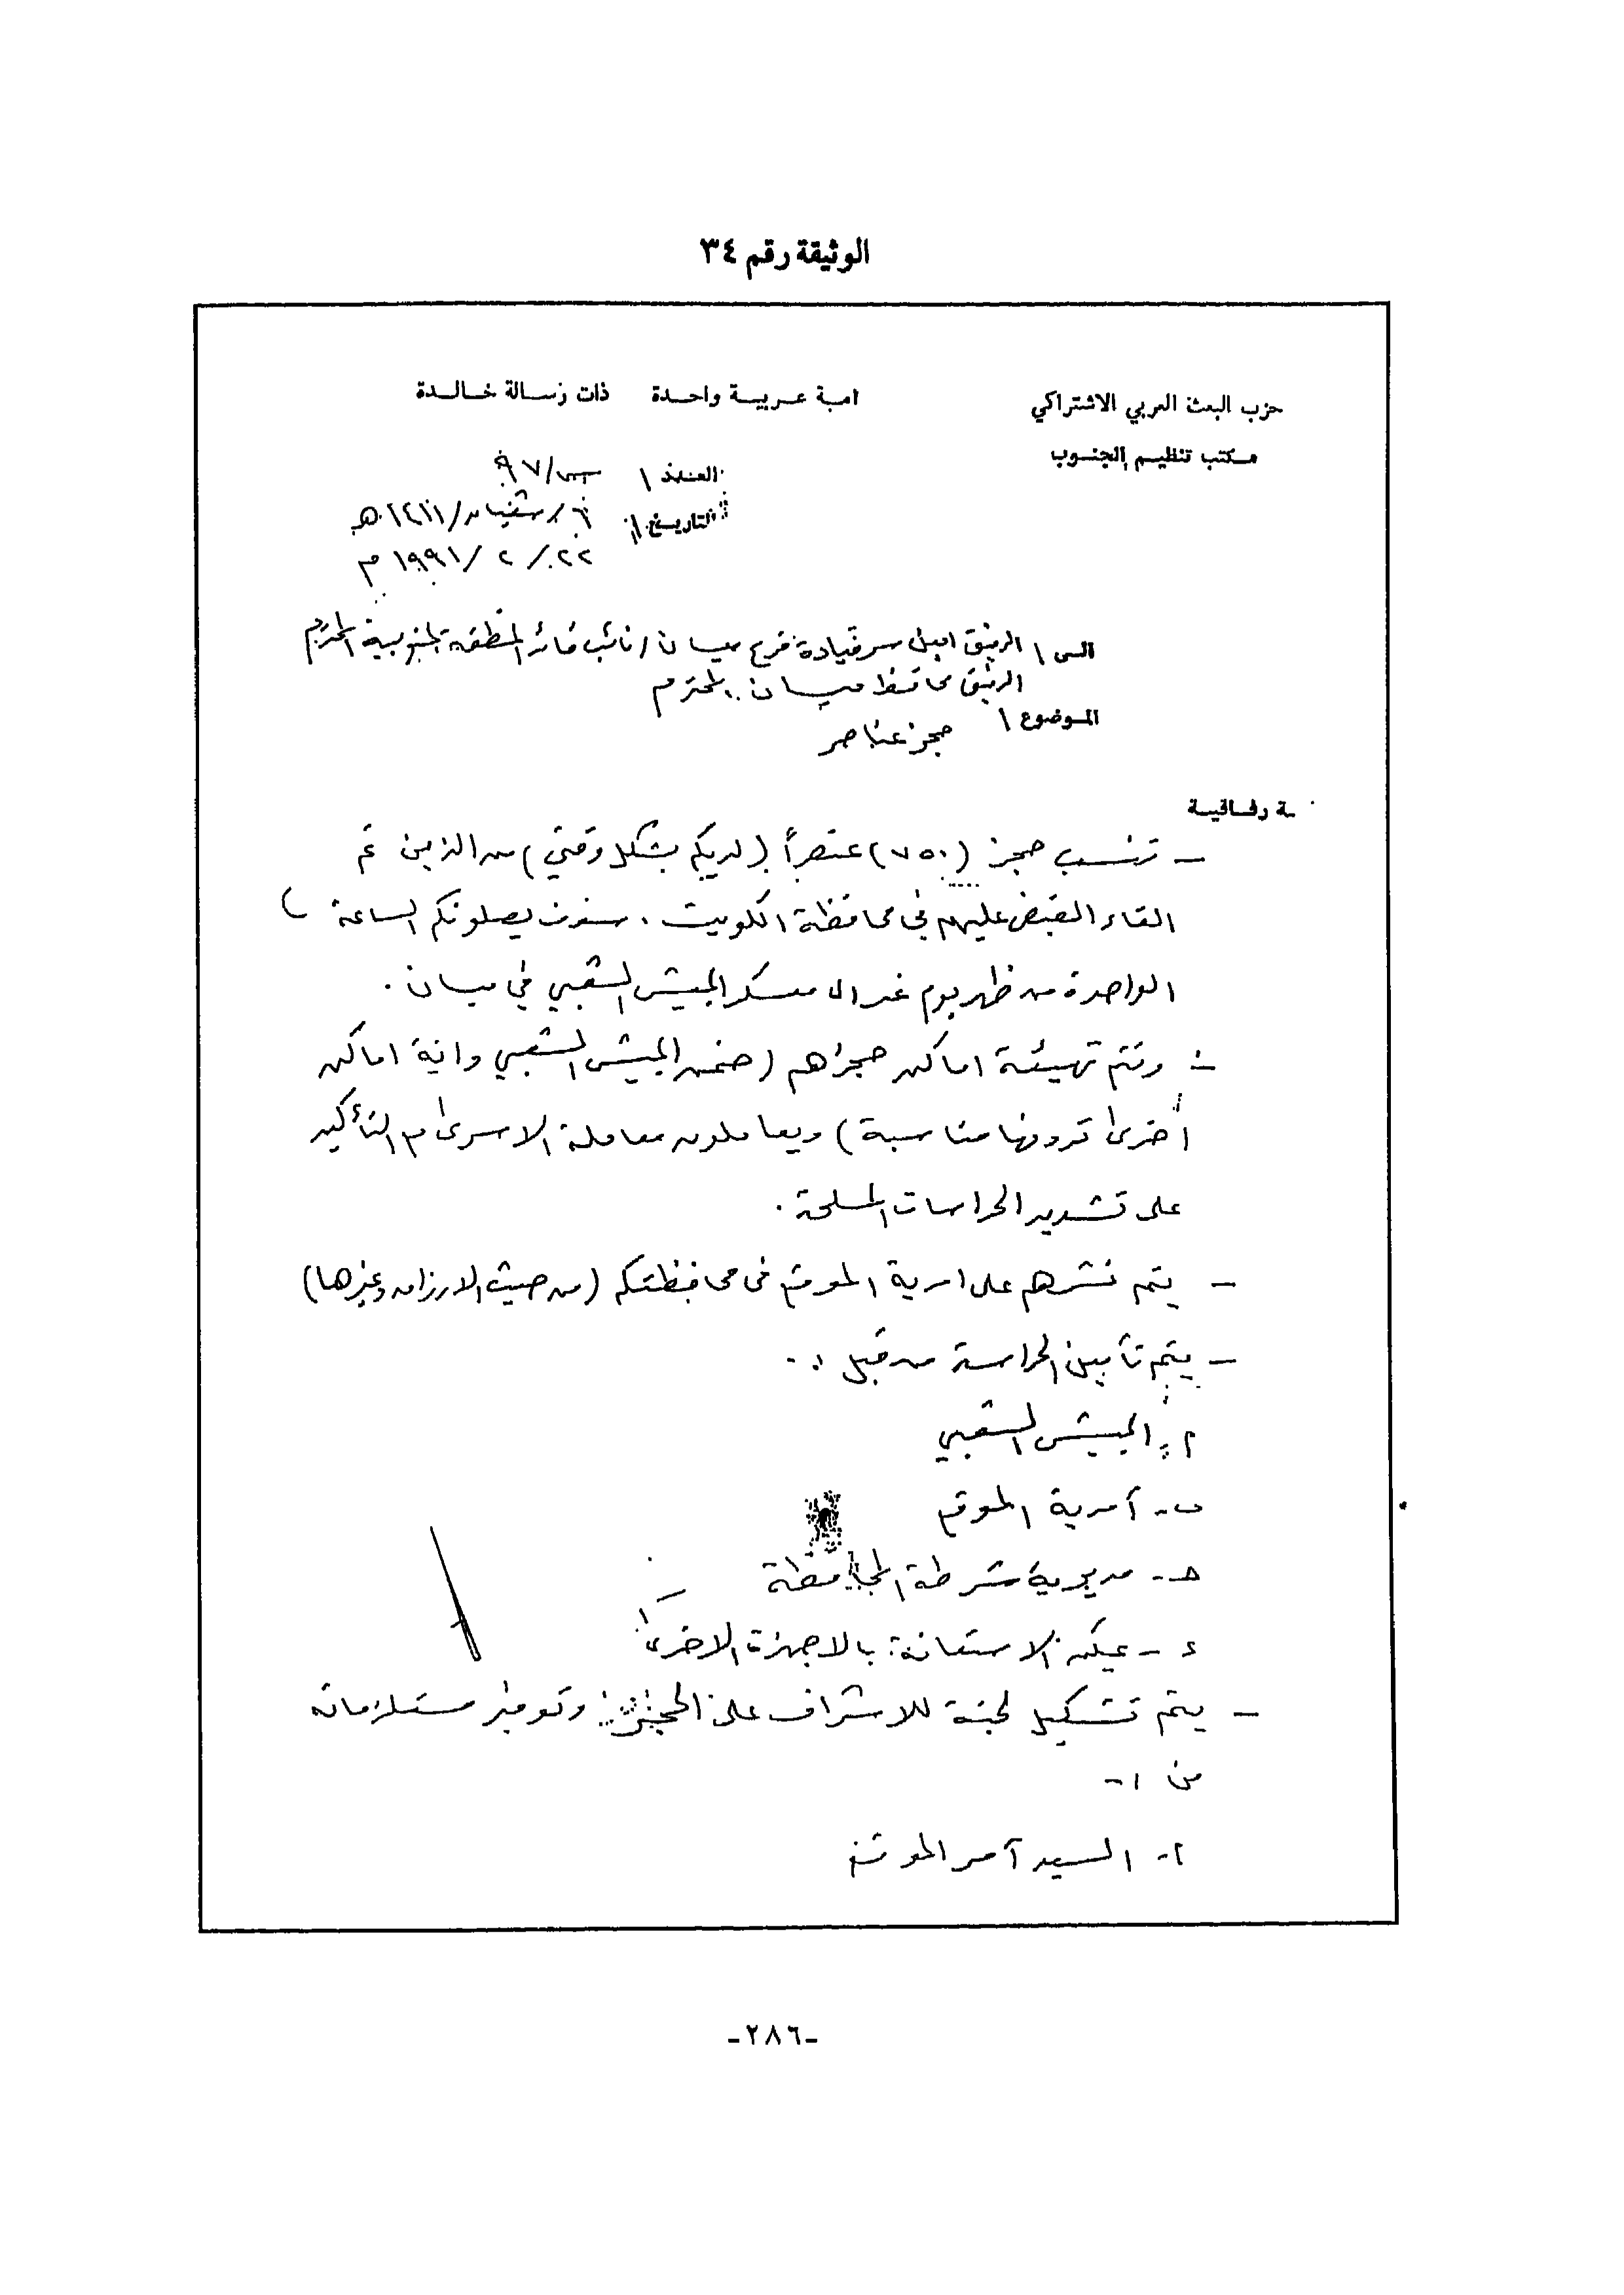 الوثيقة رقم ٣٤
حزب البعث العربي الاشتراكي امة عربية واحدة ذات رسالة خالدة
مكتب تنظيم الجنوب
العدد / س/٩٧
التاريخ / ٦/شعبان/١٤١١هـ
٢٢/٢/١٩٩١م
الى / الرفيق امين سر قيادة فرع ميسان/نائب قائد المنطقة الجنوبية المحترم
الرفيق محافظ ميسان المحترم
الموضوع / حجز عناصر
رفاقية
- تنسب حجز (٧٥٠) عنصراً (لديكم بشكل وقتي) من الذين تم
القاء القبض عليهم في محافظة الكويت . سوف يصلونكم الساعة
الواحدة من ظهر يوم غد الى معسكر الجيش الشعبي في ميسان .
- وتتم تهيئة اماكن حجزهم (ضمن الجيش الشعبي واية اماكن
أخرى ترونها مناسبة) ويعاملون معاملة الاسرى مع التأكيد
على تشديد الحراسات المسلحة .
- يتم نشرهم على امرية الموقع في محافظتكم (من حيث الارزاق وغيرها)
- يتم تأمين الحراسة من قبل :-
أ- الجيش الشعبي
ب- آمرية الموقع
حـ- مديرية شرطة المحافظة
د- يمكن الاستعانة بالاجهزة الاخرى
- يتم تشكيل لجنة للاشراف على الحجز وتوفير مستلزماته
من :-
أ- السيد آمر الموقع
-٢٨٦-